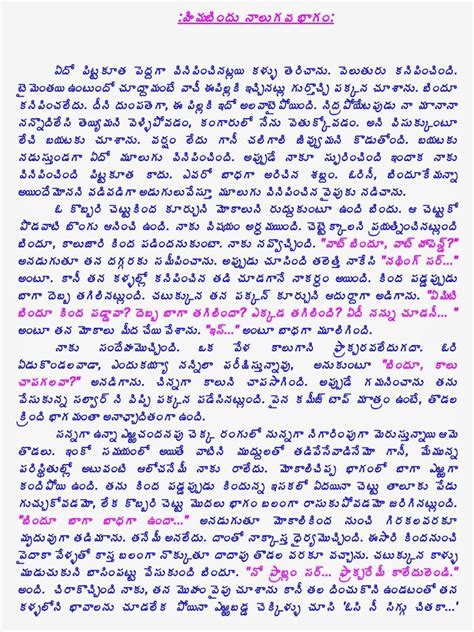 :హిమబిందు నాలుగవ భాగం:
ఏదో పిట్టకూత పెద్దగా వినిపించినట్లయి కళ్ళు తెరిచాను. వెలుతురు కనిపించింది.
టైమెంతయి ఉంటుందో చూద్దామంటే వాచీ ఈపిల్లకి ఇచ్చినట్లు గుర్తొచ్చి పక్కన చూశాను. బిందూ
కనిపించలేదు. దీని దుంపతెగా, ఈ పిల్లకి ఇదో అలవాటైపోయింది. నిద్రపోయేటపుడు నా మానానా
నన్నొదిలేసి తెయ్యిమని వెళ్ళిపోవడం, కంగారులో నేను వెతుక్కోవడం. అని విసుక్కుంటూ
లేచి బయటకు చూశాను. వర్షం లేదు గానీ చలిగాలి జివ్వుమని కొడుతోంది. బయటకు
నడుస్తుండగా ఏదో మూలుగు వినిపించింది. అప్పుడే నాకూ స్ఫురించింది ఇందాక నాకు
వినిపించింది పిట్టకూత కాదు. ఎవరో బాధగా అరిచిన శబ్దం. ఓరినీ, బిందూకేమన్నా
అయిందేమోనని వడివడిగా అడుగులువేస్తూ మూలుగు వినిపించిన వైపుకు నడిచాను.
ఓ కొబ్బరి చెట్టుకింద కూర్చుని మోకాలుని రుద్దుకుంటూ ఉంది బిందు. ఆ చెట్టుకో
పొడవాటి బొంగు ఆనించి ఉంది. నాకు విషయం అర్ధమయ్యింది. చెట్టెక్కాలని ప్రయత్నించినట్లుంది
బిందూ, కాలుజారి కింద పడిందనుకుంటా. నాకు నవ్వొచ్చింది. "వాట్ బిందూ, వాట్ హపెన్డ్?"
అనడుగుతూ తన దగ్గరకు సమీపించాను. అప్పుడు చూసింది తలెత్తి నాకేసి "నథింగ్ సర్..."
అంటూ. కానీ తన కళ్ళల్లో కనిపించిన తడి చూడగానే నాకర్థం అయింది. కింద పడ్డప్పుడు
బాగా దెబ్బ తగిలినట్లుంది. చటుక్కున తన పక్కనే కూర్చుని ఆదుర్దాగా అడిగాను. "ఏమిటి
బిందూ కింద పడ్డావా? దెబ్బ బాగా తగిలిందా? ఎక్కడ తగిలింది? ఏదీ నన్ను చూడనీ... "
అంటూ తన మోకాలు మీద చేయి వేశాను. "ఇస్..." అంటూ బాధగా మూలిగింది.
నాకు సందేహమొచ్చింది. ఒక వేళ కాలుగానీ ఫ్రాక్చరవలేదుగదా. ఓరి
ఏడుకొండలవాడా, ఎందుకయ్యా నన్నిలా పరీక్షిస్తున్నావు, అనుకుంటూ "బిందూ, కాలు
చాపగలవా?" అనడిగాను. చిన్నగా కాలుని చాపసాగింది. అప్పుడే గమనించాను తను
వేసుకున్న సల్వార్ ని విప్పి పక్కన పడేసినట్లుంది. పైన కమీజ్ టాప్ మాత్రం ఉంటే, తొడల
క్రింది భాగమంతా అనాచ్ఛాదితంగా ఉంది.
సన్నగా ఉన్నా ఎఱ్ఱచందనపు చెక్క రంగులో నున్నగా నిగారింపుగా మెరుస్తున్నాయి ఆమె
తొడలు. ఇంకో సమయంలో అయితే వాటిని ముద్దులతో తడిపేసేవాడినేమో గానీ, మేమున్న
పరిస్థితుల్లో అటువంటి ఆలోచనేమీ నాకు రాలేదు. మోకాలిచిప్ప భాగంలో బాగా ఎఱ్ఱగా
కందిపోయి ఉంది. తను కింద పడ్డప్పుడు కిందున్న ఇసకలో ఏదయినా చెట్టు తాలూకు పేడు
గుచ్చుకోవడమో, లేక కొబ్బరి చెట్టు మొదలు భాగం బలంగా రాసుకుపోవడమో జరిగినట్లుంది.
"బిందూ బాగా బాధగా ఉందా..." అనడుగుతూ మోకాలికింద నుంచి గిరకలవరకూ
మృదువుగా తడిమాను. తనేమీ అనలేదు. దాంతో నాక్కాస్త ధైర్యమొచ్చింది. ఈసారి కిందనుంచి
పైదాకా వేళ్ళతో కాస్త బలంగా నొక్కుతూ దాదాపు తొడల వరకూ వచ్చాను. చటుక్కున కాళ్ళు
ముడుచుకుని బాసింపట్టు వేసుకుని కూర్చుంది బిందూ. "నో ప్రాబ్లం సర్... ఫ్రాక్చరేమీ కాలేదులెండి."
అంది. చిరాకొచ్చింది నాకు, తన మొహం వైపు చూచాను కానీ తల దించుకొని ఉండటంతో తన
కళ్ళలోని భావాలను చూడలేక పోయినా ఎఱ్ఱబడ్డ చెక్కిళ్ళు చూసి 'ఓసి నీ సిగ్గు చితకా...'